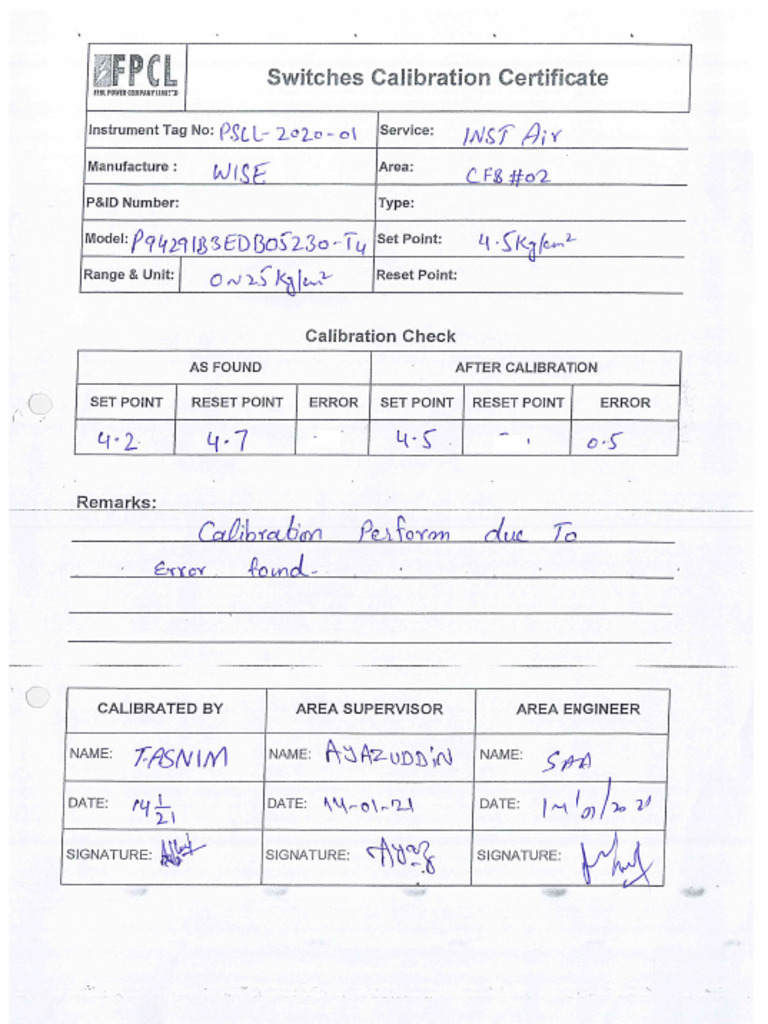 FPCL
FFBL POWER COMPANY LIMITED
Switches Calibration Certificate
Instrument Tag No: PSLL-2020-01 Service: INST Air
Manufacture : WISE Area: CFB #02
P&ID Number: Type:
Model: P94291B3EDB05230-T4 Set Point: 4.5Kg/cm²
Range & Unit: 0~25 Kg/cm² Reset Point:
Calibration Check
AS FOUND AFTER CALIBRATION
SET POINT RESET POINT ERROR SET POINT RESET POINT ERROR
4.2 4.7 - 4.5 - 0.5
Remarks:
Calibration Perform due To
Error found.
CALIBRATED BY AREA SUPERVISOR AREA ENGINEER
NAME: T.ASNIM NAME: AYAZUDDiN NAME: SAA
DATE: 14 1/21 DATE: 14-01-21 DATE: 14/01/2021
SIGNATURE: SIGNATURE: Ayaz SIGNATURE: